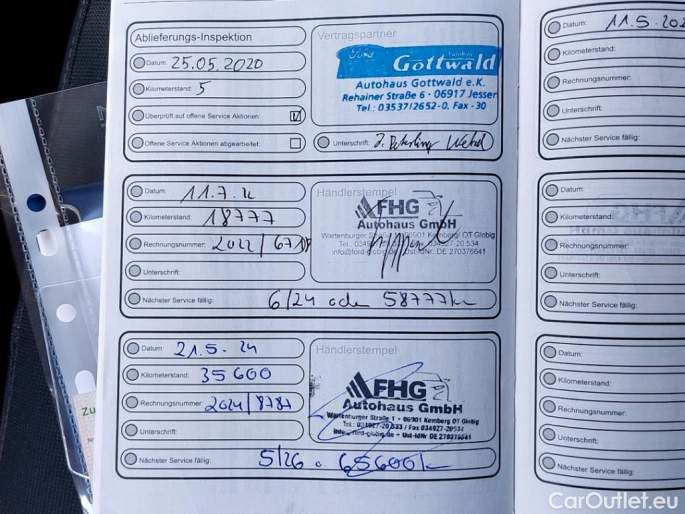 Ablieferungs-Inspektion
Datum: 25.05.2020
Kilometerstand: 5
Überprüft auf offene Service Aktionen:
Offene Service Aktionen abgearbeitet:
Vertragspartner
Ford Autohaus
Gottwald
Autohaus Gottwald e.K.
Rehainer Straße 6 · 06917 Jessen
Tel.: 03537/2652-0, Fax -30
Unterschrift:
Datum: 11.7.
Kilometerstand: 18777
Rechnungsnummer: 2022/
Unterschrift:
Nächster Service fällig: 6/24 oder 58777km
Händlerstempel
FHG
Autohaus GmbH
Wartenburger Straße 06901 Kemberg OT Globig
Datum: 21.5.24
Kilometerstand: 35600
Rechnungsnummer: 2024/8787
Unterschrift:
Nächster Service fällig: 5/26 o. 65600
Händlerstempel
FHG
Autohaus GmbH
Wartenburger Straße 1 · 06901 Kemberg OT Globig
Tel.: 034927-20 333 / Fax 034927-20534
info@ford-globig.de · Ust-IdNr DE 270376641
Datum: 11.5.202
Kilometerstand:
Rechnungsnummer:
Unterschrift:
Nächster Service fällig:
Datum:
Kilometerstand:
Rechnungsnummer:
Unterschrift:
Nächster Service fällig:
Datum:
Kilometerstand:
Rechnungsnummer:
Unterschrift:
Nächster Service fällig:
Zu
CarOutlet.eu